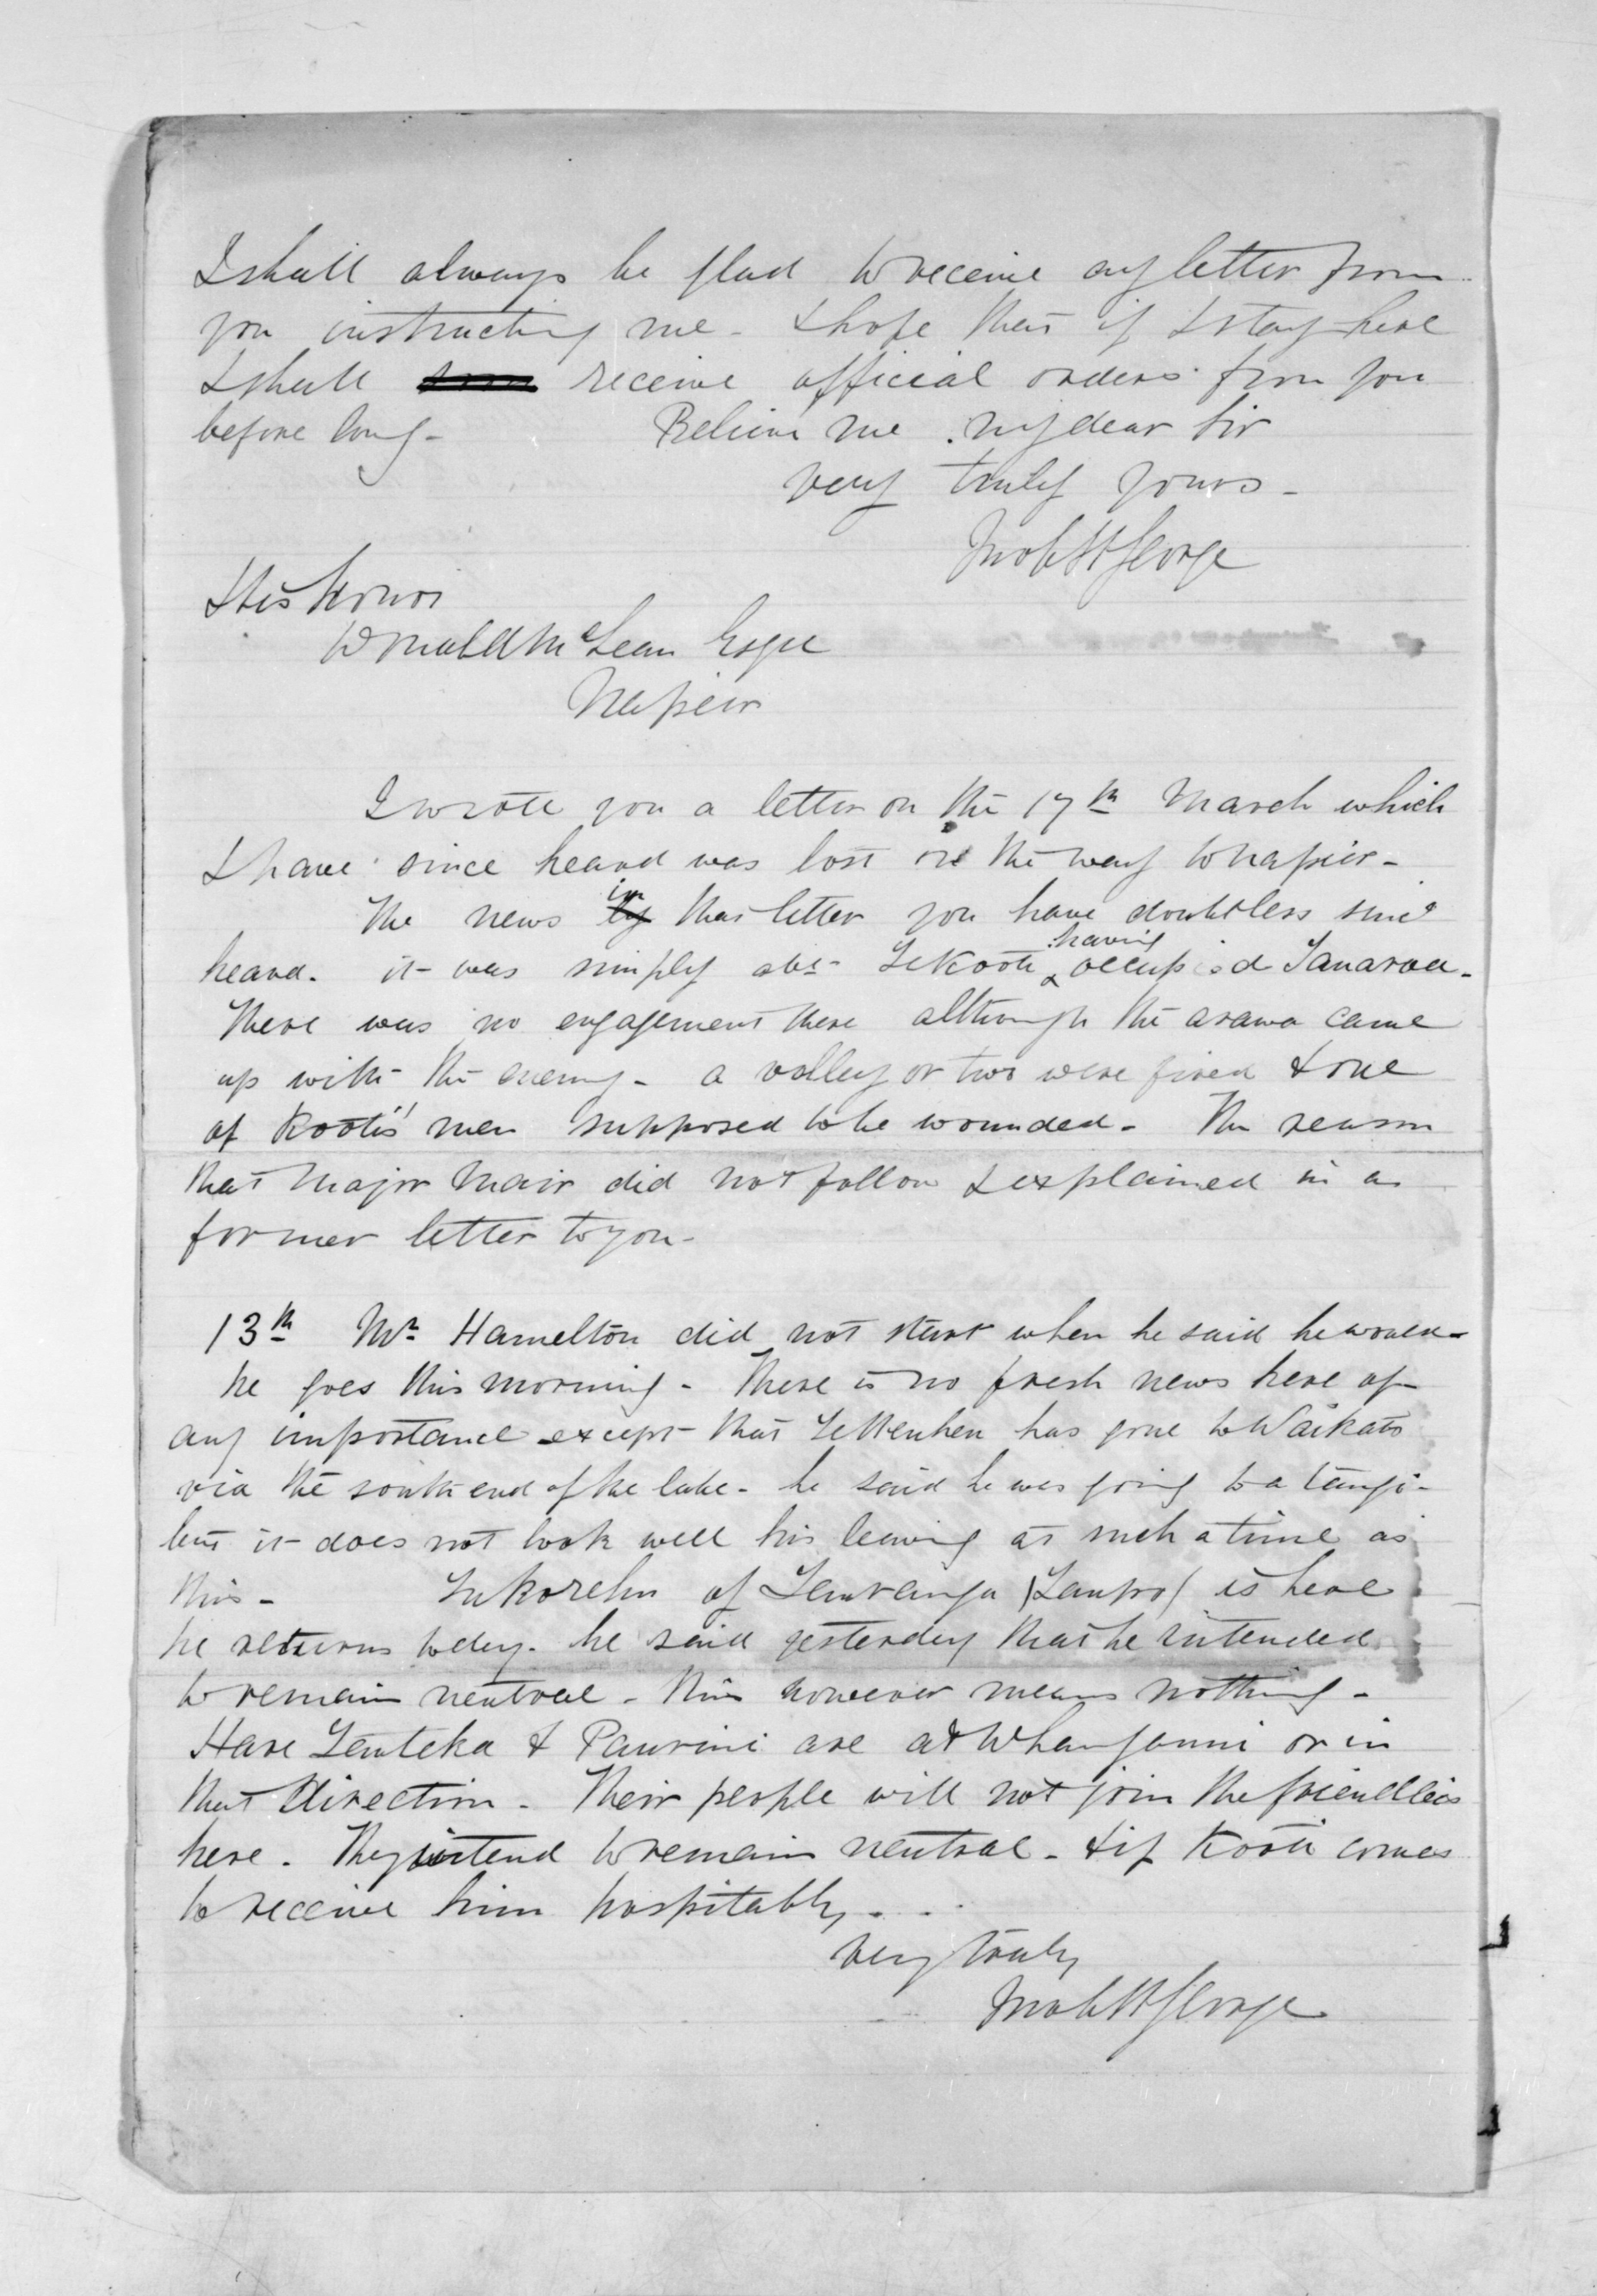 I shall always be glad to receive any letter from
you instructing me - I hope that if I stay here
I shall receive official orders from you
before long - Believe me my dear Sir
very truly yours -
Jno C St George
His Honor
Donald McLean Esqre
Napier
I wrote you a letter on the 17th March which
I have since heard was lost on the way to Napier -
The news in that letter you have doubtless since
heard - it was simply abt Te Kooti having occupied Tauaroa -
There was no engagement there although the Arawa came
up with the enemy - a volley or two were fired & one
of Kooti's men supposed to be wounded - The reason
that Major Mair did not follow I explained in a
former letter to you -
13th Mr Hamelton did not start when he said he would -
he goes this morning - There is no fresh news here of
any importance except that Te Heuheu has gone to Waikato
via the south end of the lake - he said he was going to a tangi -
but it does not look well his leaving at such a time as
this - of Tauranga (Taupo) is here
he returns today - he said yesterday that he intended
to remain neutral - this however means nothing -
Hare Tauteka & Paurini are at Whanganui or in
that direction - Their people will not join the friendlies
here - They intend to remain neutral - & if Kooti comes
to receive him hospitably - - -
Very truly
Jno C St George